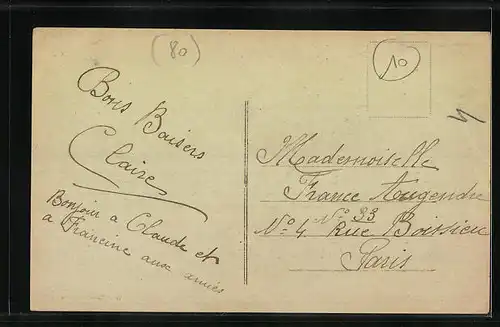 (80)
10
Bons Baisers
Claire
Bonjour a Claude et
a Francine aux amies
Mademoiselle
France Augendre
Nº 33
Nº 4 Rue Boissieu
Paris